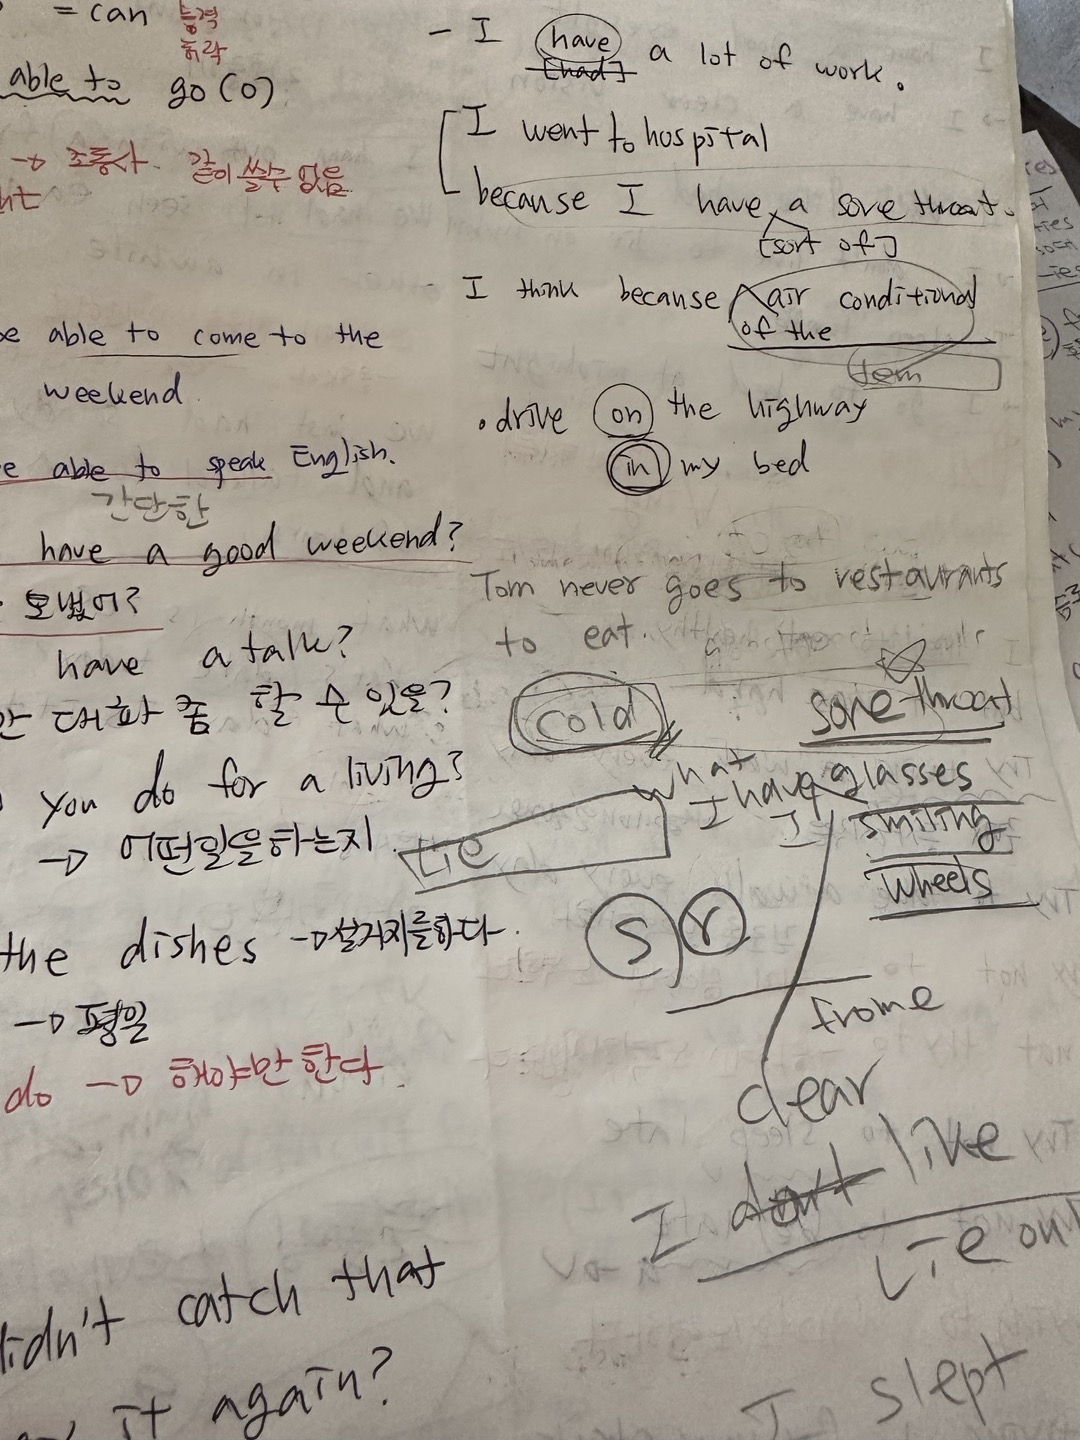 = can 능력
허락
able to go (o)
→ 조동사. 같이 쓸 수 없음
able to come to the
weekend
able to speak English.
간단한
have a good weekend?
have a talk?
대화 좀 할 수 있을?
you do for a living?
→ 어떤일을하는지
the dishes → 설거지를하다.
→ 평일
do → 해야만 한다.
didn't catch that
it again?
- I have a lot of work.
[had]
I went to hospital
because I have a sore throat.
[sort of]
I think because air conditional
of the
tem
· drive on the highway
in my bed
Tom never goes to restaurants
to eat.
cold
sore throat
what
I have glasses
I smiling
wheels
tie
S r
frome
clear
I don't like
Lie on
I slept